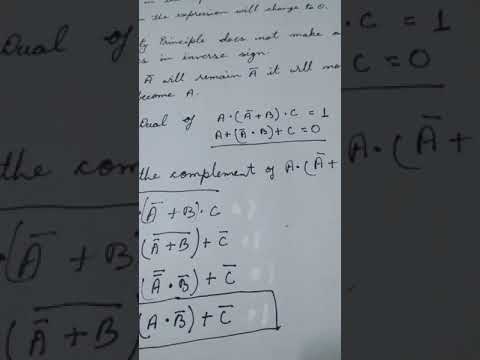 the expression will change to 0.
Principle does not make a
in inverse sign.
Ā will remain Ā it will
become A.
Dual of A·(Ā+B)·C = 1
A+(Ā·B)+C = 0
C = 0
the complement of A·(Ā+
(Ā+B)·C
(\overline{Ā+B})+C̄
(\overline{Ā}·B̄)+C̄
(A·B̄)+C̄
Dual of
= 1
C = 0
A·(Ā+
(Ā+B)
(\overline{Ā+B})